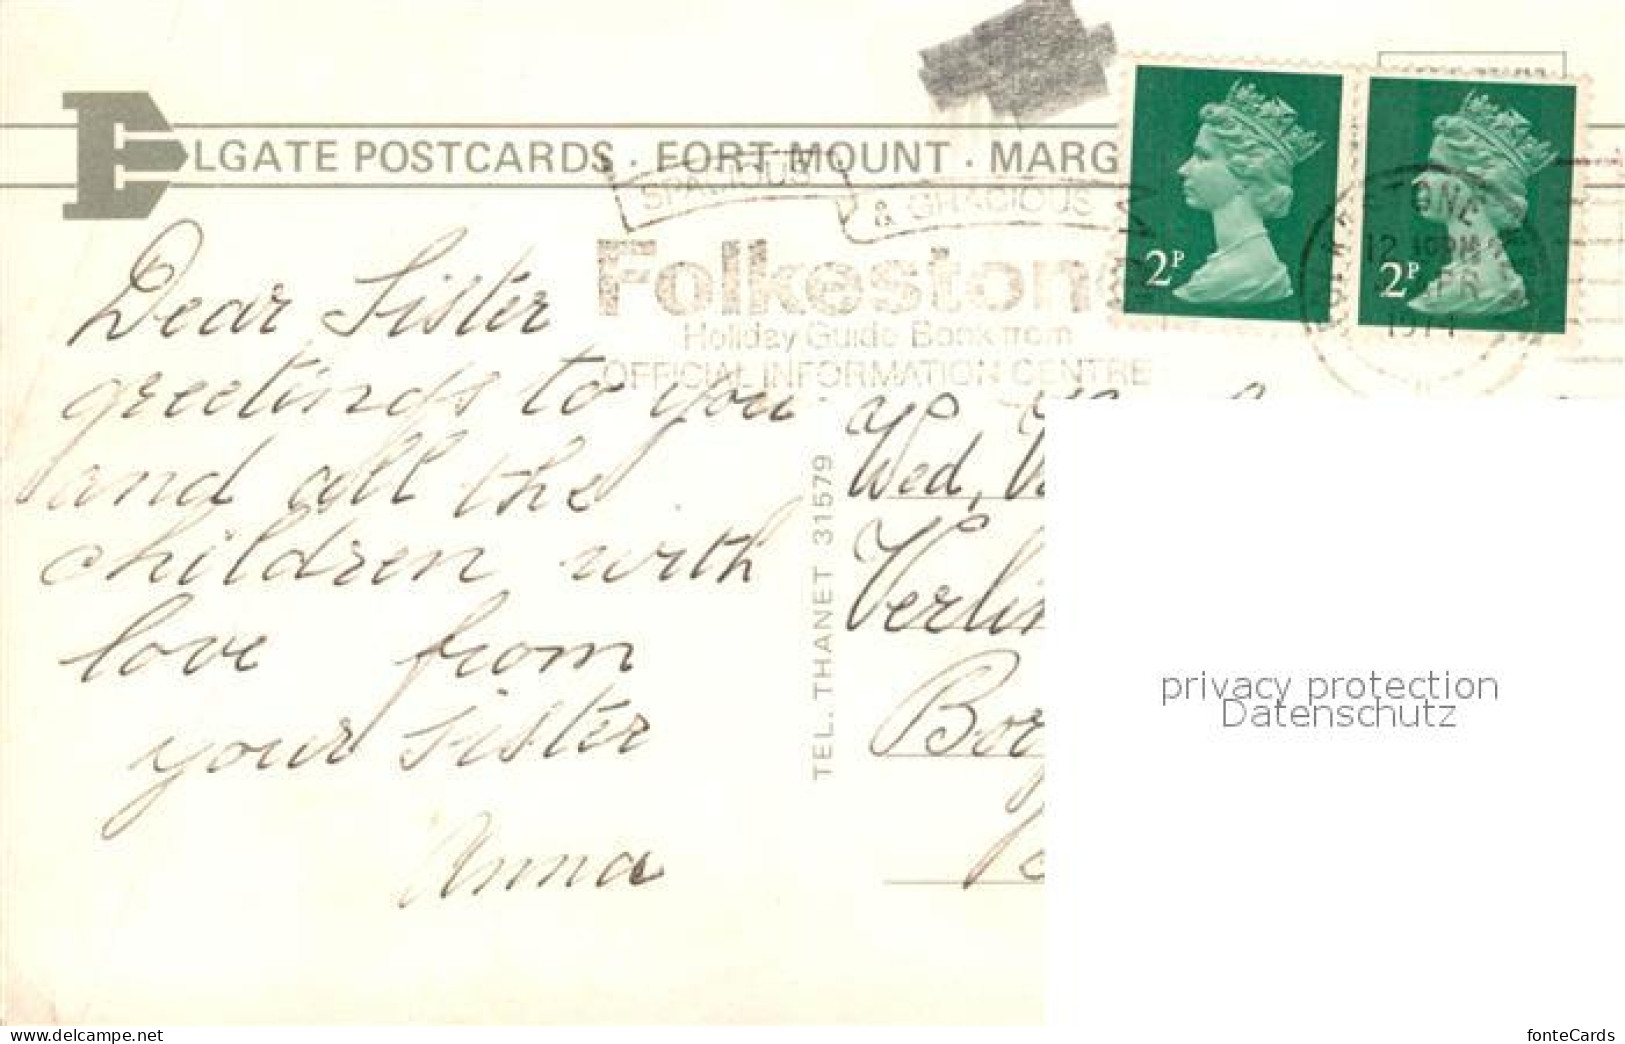 ELGATE POSTCARDS · FORT MOUNT · MARG
SPACIOUS
& GRACIOUS
Folkestone
Holiday Guide Book from
OFFICIAL INFORMATION CENTRE
2P
2P
Dear Sister
greetings to you
and all the
children with
love from
your sister
Anna
TEL. THANET 31579
Wed,
privacy protection
Datenschutz
www.delcampe.net
fonteCards